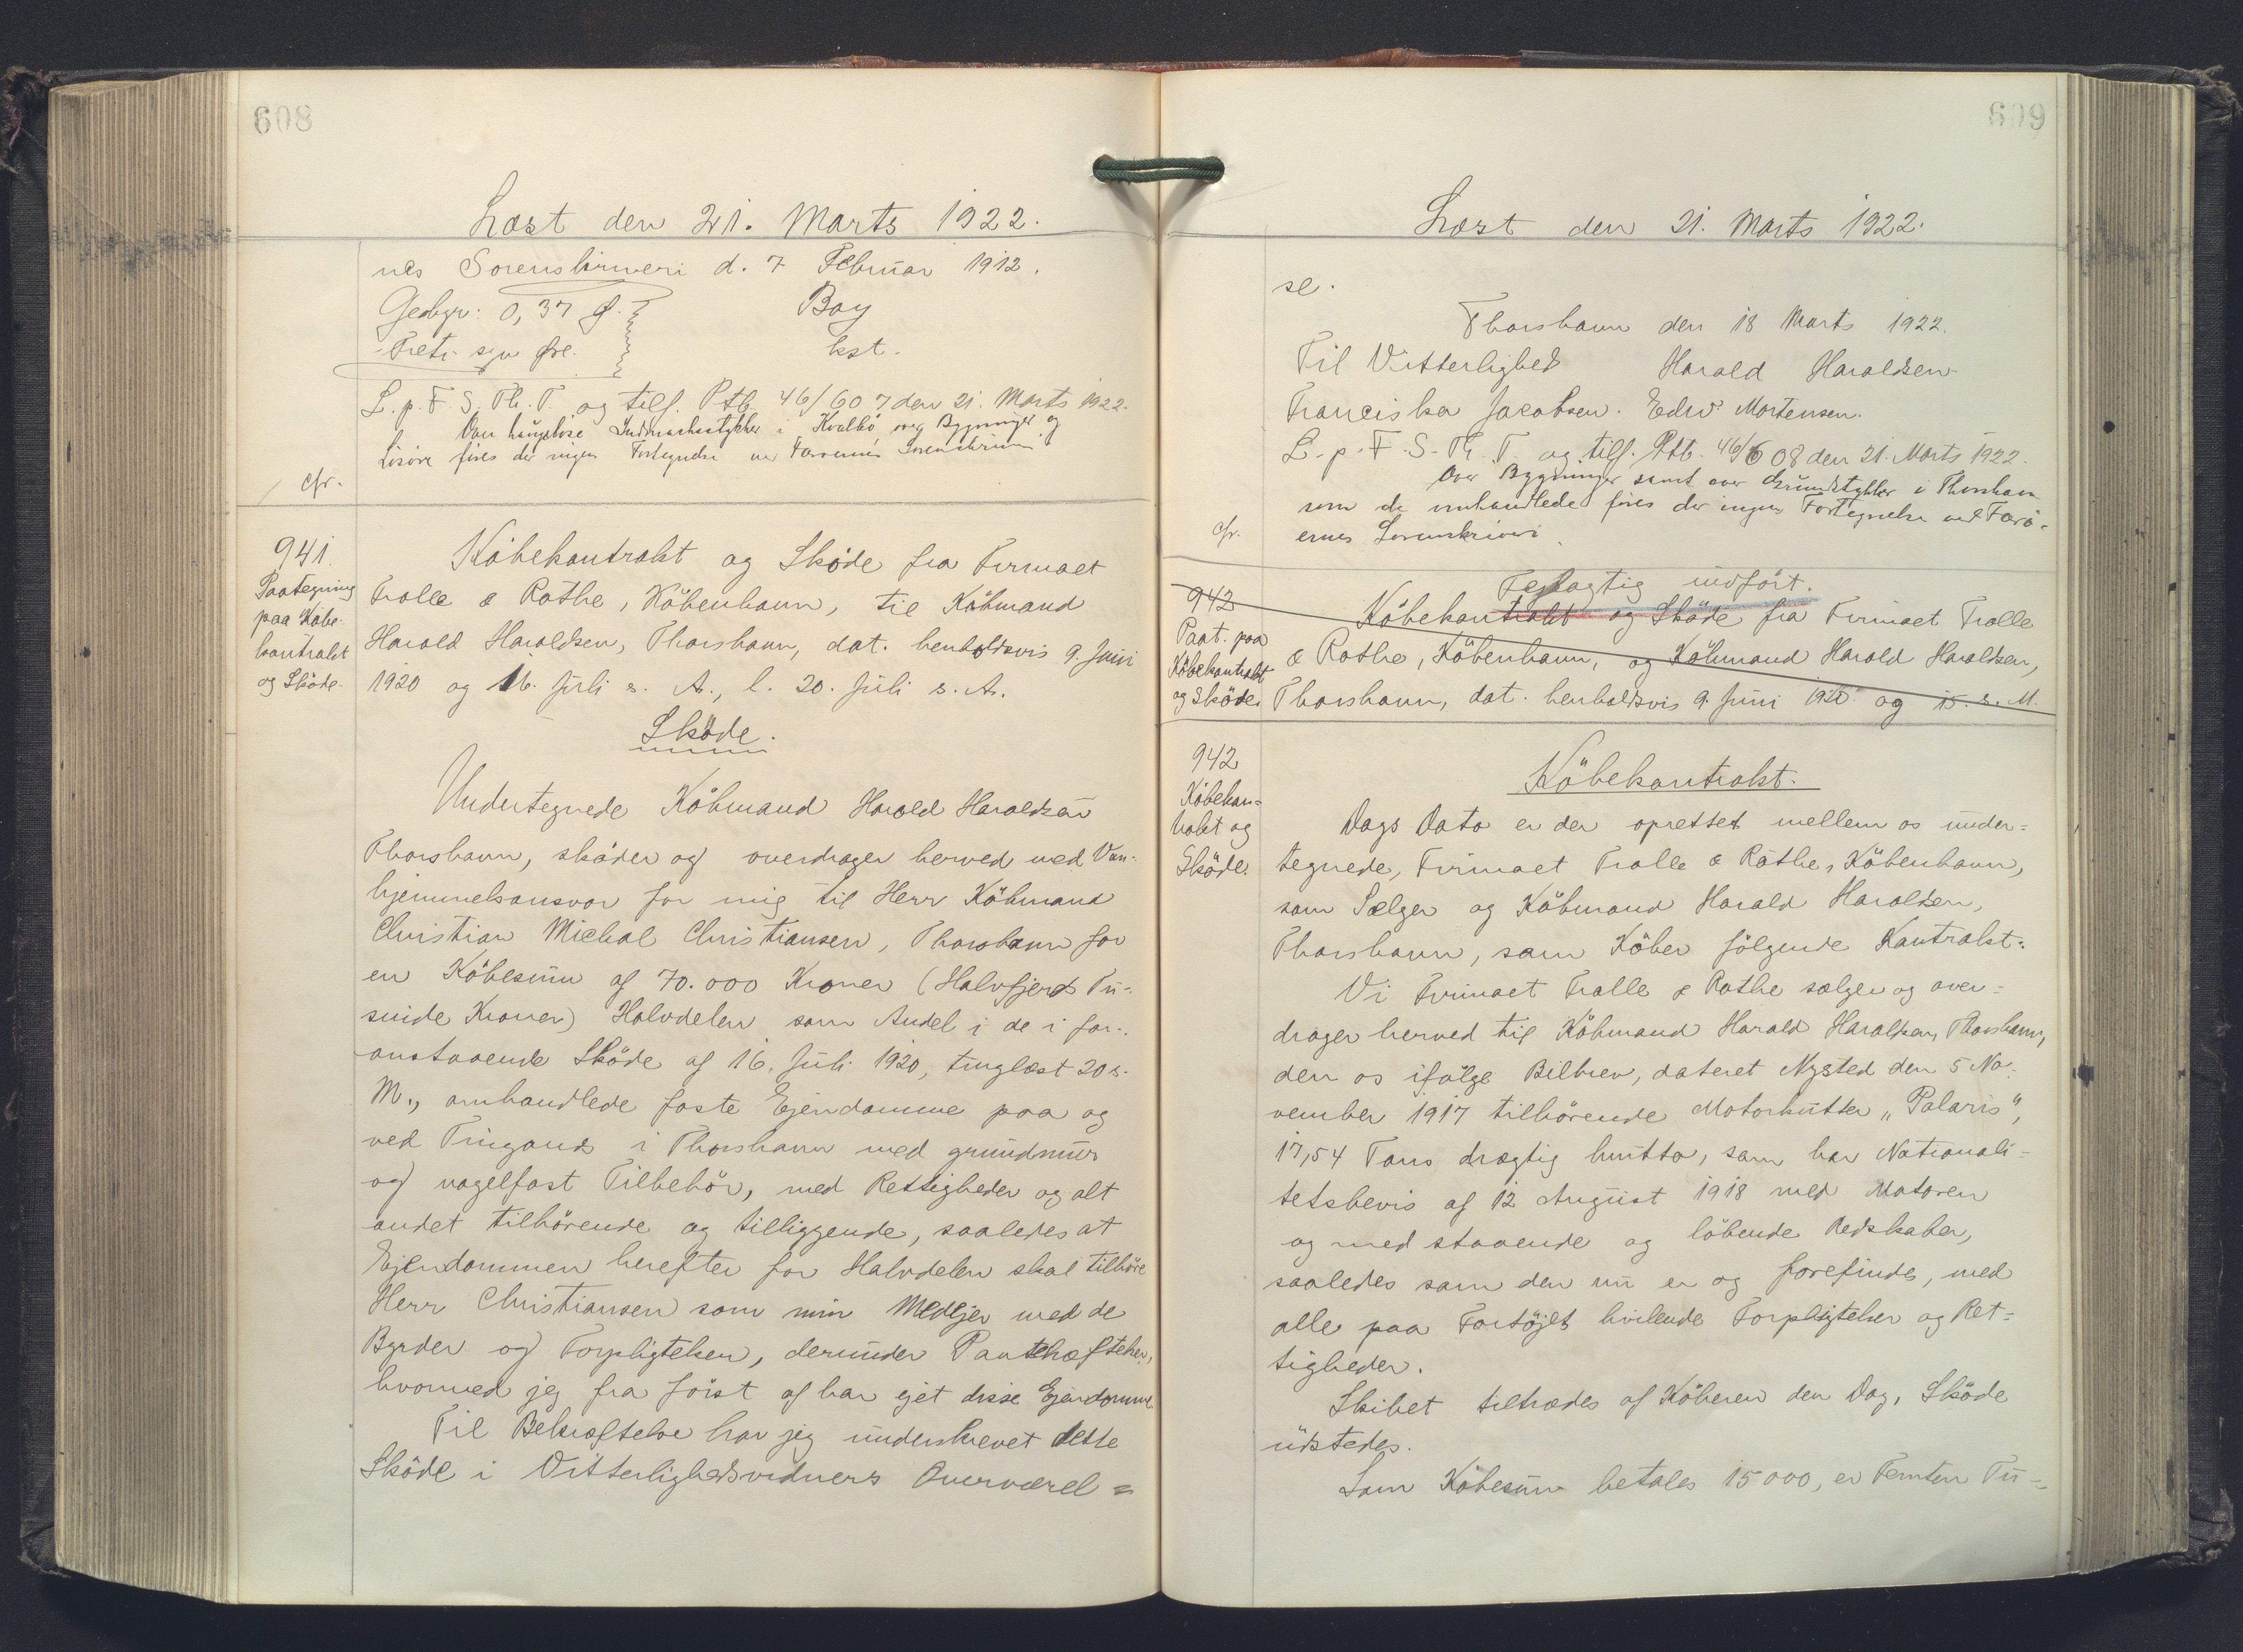 608
Læst den 21. Marts 1922.
nes Sorenskriveri d. 7 Februar 1912.
Gebyr: 0,37 Ø. Bay
Treti syv Øre. kst.
L. p. F. S. Th. T. og tilf. Ptb 46/607 den 21. Marts 1922.
Over haugeløse Indmarksstykker i Kvalbø og Bygninger og
Lösöre føres der ingen Fortegnelse ved Færøernes Sorenskriveri
cfr.
941.
Paategning
paa Købe-
kontrakt
og Skøde.
Köbekontrakt og Sköde fra Firmaet
Trolle & Rothe, Köbenhavn, til Köbmand
Harald Haraldsen, Thorshavn, dat. henholdsvis 9. Juni
1920 og 16. Juli s. A., l. 20. Juli s. A.
Sköde.
Undertegnede Köbmand Harald Haraldsen
Thorshavn, sköder og overdrager herved med Van-
hjemmelsansvar for mig til Herr Köbmand
Christian Michal Christiansen, Thorshavn for
en Köbesum af 70.000 Kroner (Halvfjerds Tu-
sinde Kroner) Halvdelen som Andel i de i for-
anstaaende Sköde af 16. Juli 1920, tinglæst 20 s.
M., omhandlede faste Ejendomme paa og
ved Tinganæs i Thorshavn med grundmur
og nagelfast Tilbehör, med Rettigheder og alt
andet tilhörende og tilliggende, saaledes at
Ejendommen herefter for Halvdelen skal tilhöre
Herr Christiansen som min Medejer med de
Byrder og Forpligtelser, derunder Pantehæftelser,
hvormed jeg fra först af har ejet disse Ejendomme
Til Bekræftelse har jeg underskrevet dette
Sköde i Vitterlighedsvidners Overværel=
609
Læst den 21. Marts 1922.
se.
Thorshavn den 18 Marts 1922.
Til Vitterlighed Harald Haraldsen
Franciska Jacobsen. Edw. Mortensen.
L. p. F. S. Th. T. og tilf. Ptb. 46/608 den 21. Marts 1922.
Over Bygninger samt over Grundstykker i Thorshavn
som de omhandlede føres der ingen Fortegnelse ved Færö-
ernes Sorenskriveri
cfr.
Fejlagtig indfört.
942
Paat. paa
Köbekontrakt
og Sköde.
Köbekontrakt og Sköde fra Firmaet Trolle
& Rothe, Köbenhavn, og Köbmand Harald Haraldsen,
Thorshavn, dat. henholdsvis 9. Juni 1920 og 15. s. M.
942
Köbekon=
trakt og
Sköde.
Köbekontrakt.
Dags Dato er der oprettet mellem os under=
tegnede, Firmaet Trolle & Rothe, Köbenhavn,
som Sælger og Köbmand Harald Haraldsen,
Thorshavn, som Köber fölgende Kontrakt:
Vi Firmaet Trolle & Rothe sælger og over=
drager herved til Köbmand Harald Haraldsen, Thorshavn,
den os ifölge Bilbrev, dateret Nysted den 5 No=
vember 1917 tilhörende Motorkutter „Polaris",
17,54 Tons drægtig brutto, som har Nationali=
tetsbevis af 12 August 1918 med Motoren
og med staaende og löbende Redskaber,
saaledes som den nu er og forefindes, med
alle paa Fartöjet hvilende Forpligtelser og Ret=
tigheder.
Skibet tiltrædes af Köberen den Dag, Sköde
udstedes.
Som Köbesum betales 15000, er Femten Tu=